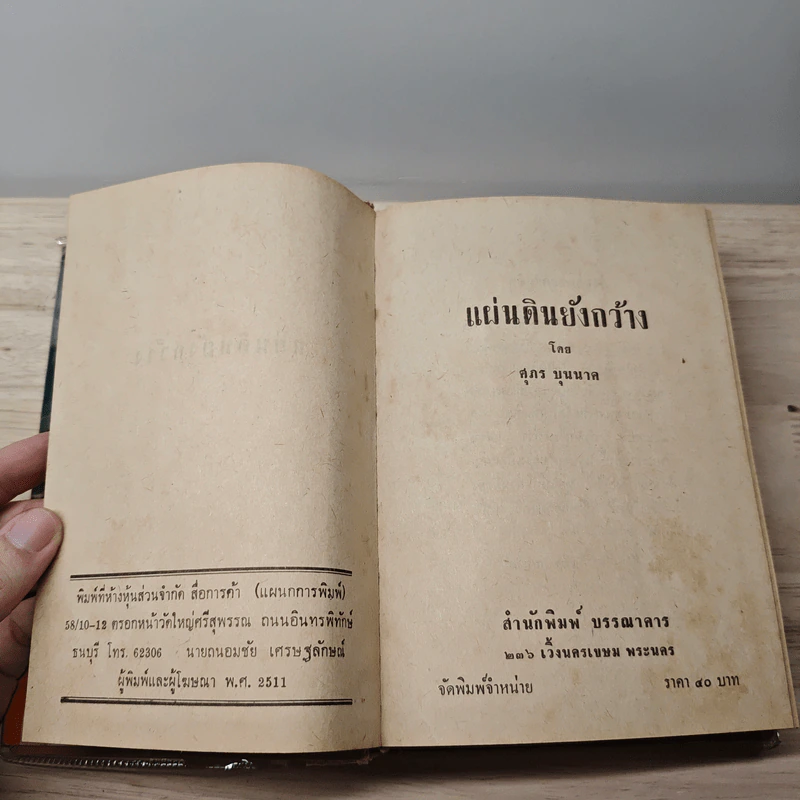 พิมพ์ที่ห้างหุ้นส่วนจำกัด สื่อการค้า (แผนกการพิมพ์)
58/10-12 ตรอกหน้าวัดใหญ่ศรีสุพรรณ ถนนอินทรพิทักษ์
ธนบุรี โทร. 62306 นายถนอมชัย เศรษฐลักษณ์
ผู้พิมพ์และผู้โฆษณา พ.ศ. 2511
แผ่นดินยังกว้าง
โดย
ศุภร บุนนาค
สำนักพิมพ์ บรรณาคาร
๒๓๖ เวิ้งนครเขษม พระนคร
จัดพิมพ์จำหน่าย ราคา ๔๐ บาท